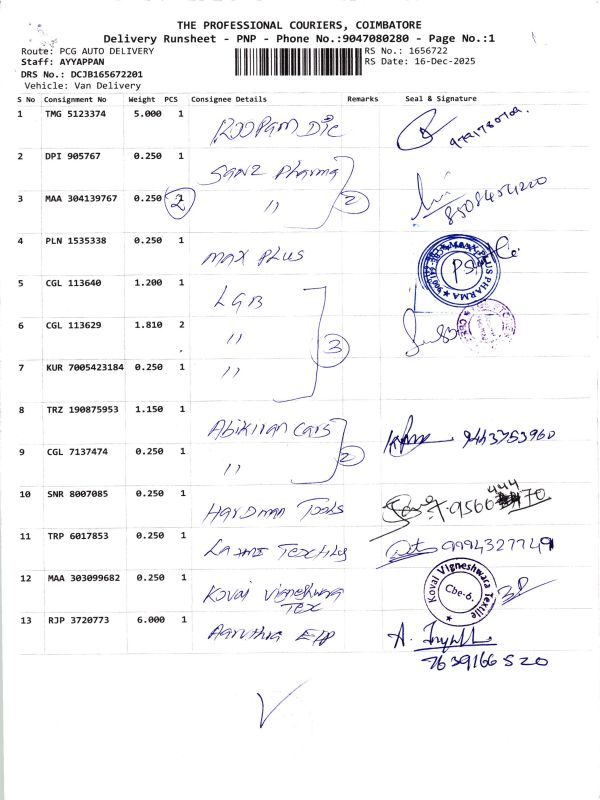 THE PROFESSIONAL COURIERS, COIMBATORE
Delivery Runsheet - PNP - Phone No.:9047080280 - Page No.:1
Route: PCG AUTO DELIVERY RS No.: 1656722
Staff: AYYAPPAN RS Date: 16-Dec-2025
DRS No.: DCJB165672201
Vehicle: Van Delivery
S No Consignment No Weight PCS Consignee Details Remarks Seal & Signature
1 TMG 5123374 5.000 1 ROOPAM Dic
2 DPI 905767 0.250 1 SANZ Pharma
3 MAA 304139767 0.250 2 " 2
4 PLN 1535338 0.250 1 MAX PLUS
5 CGL 113640 1.200 1 LGB
6 CGL 113629 1.810 2 " 3
7 KUR 7005423184 0.250 1 "
8 TRZ 190875953 1.150 1 Abikiran cars 9443753960
9 CGL 7137474 0.250 1 " 2
10 SNR 8007085 0.250 1 HARDMAN Tools
11 TRP 6017853 0.250 1 Laxmi Textiles 9994327749
12 MAA 303099682 0.250 1 Kovai Vigneshwara Tex
Kovai Vigneshwara Textile Cbe-6.
13 RJP 3720773 6.000 1
7639166520